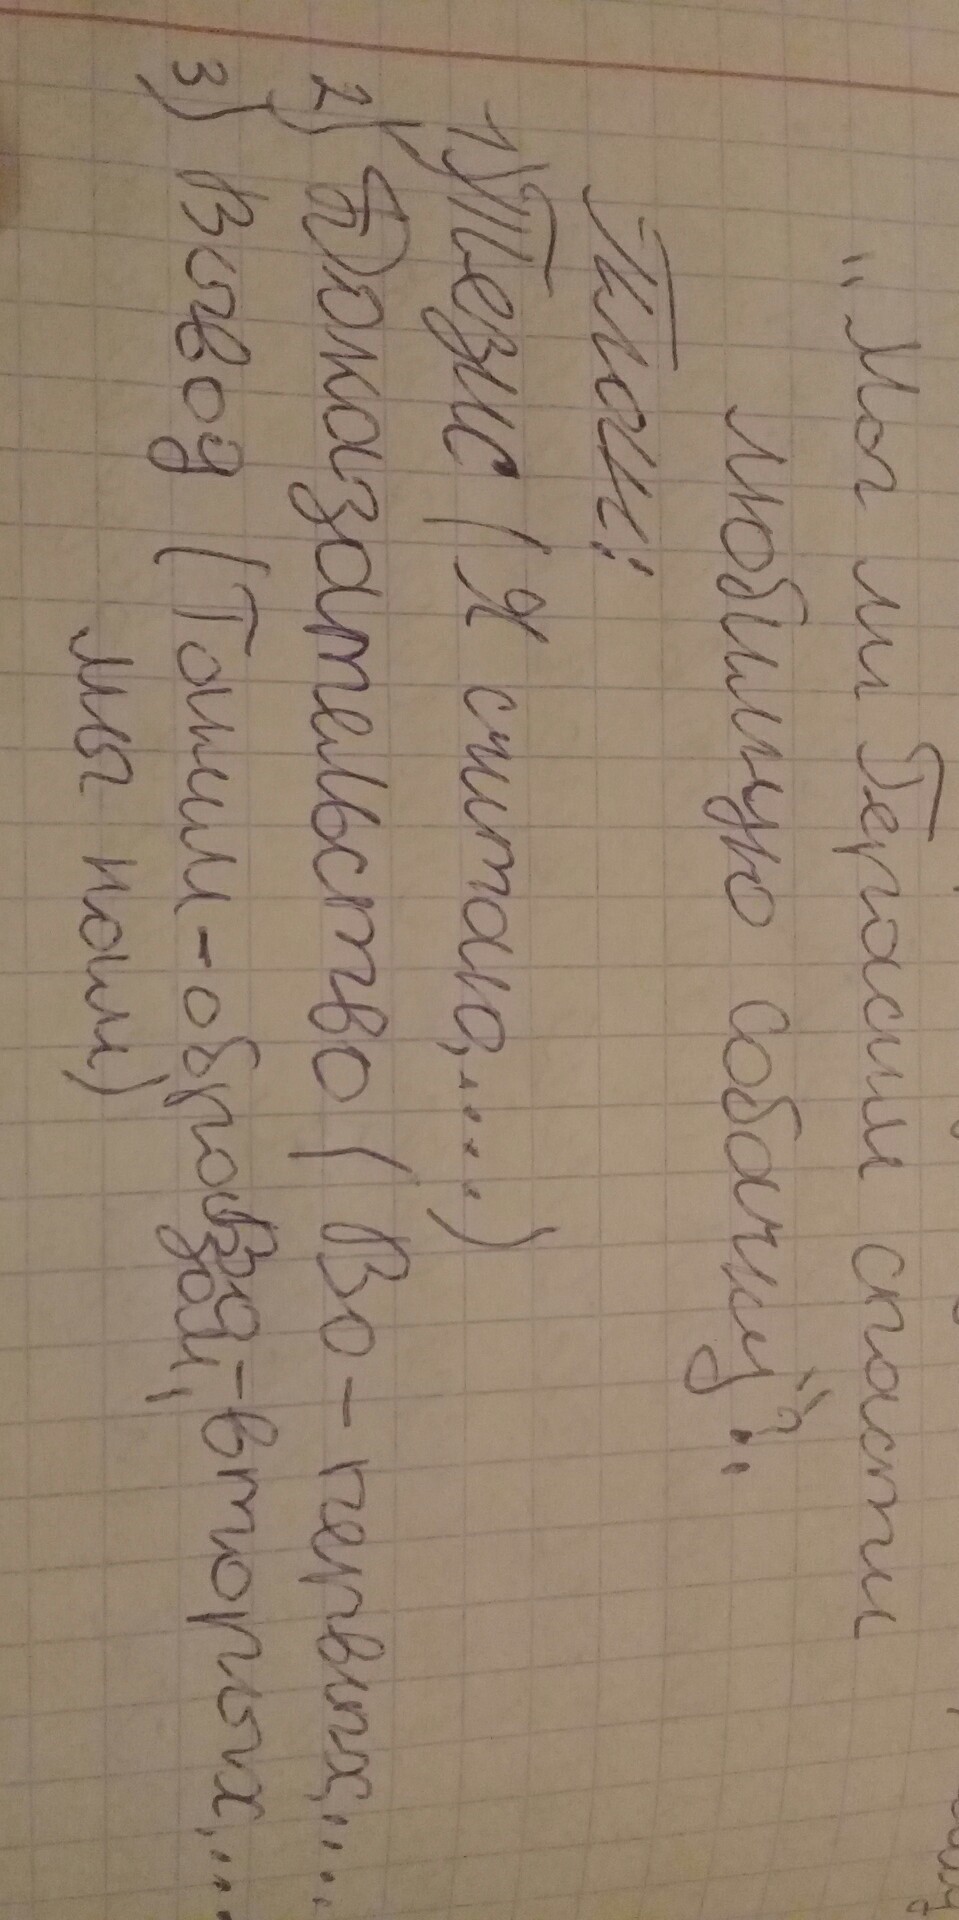 "Мог ли Герасим спасти
любимую собачку?"
План:
1) Тезис (Я считаю,...)
2) Доказательство (Во-первых,...
Во-вторых,...
3) Вывод (Таким-образом,
мы